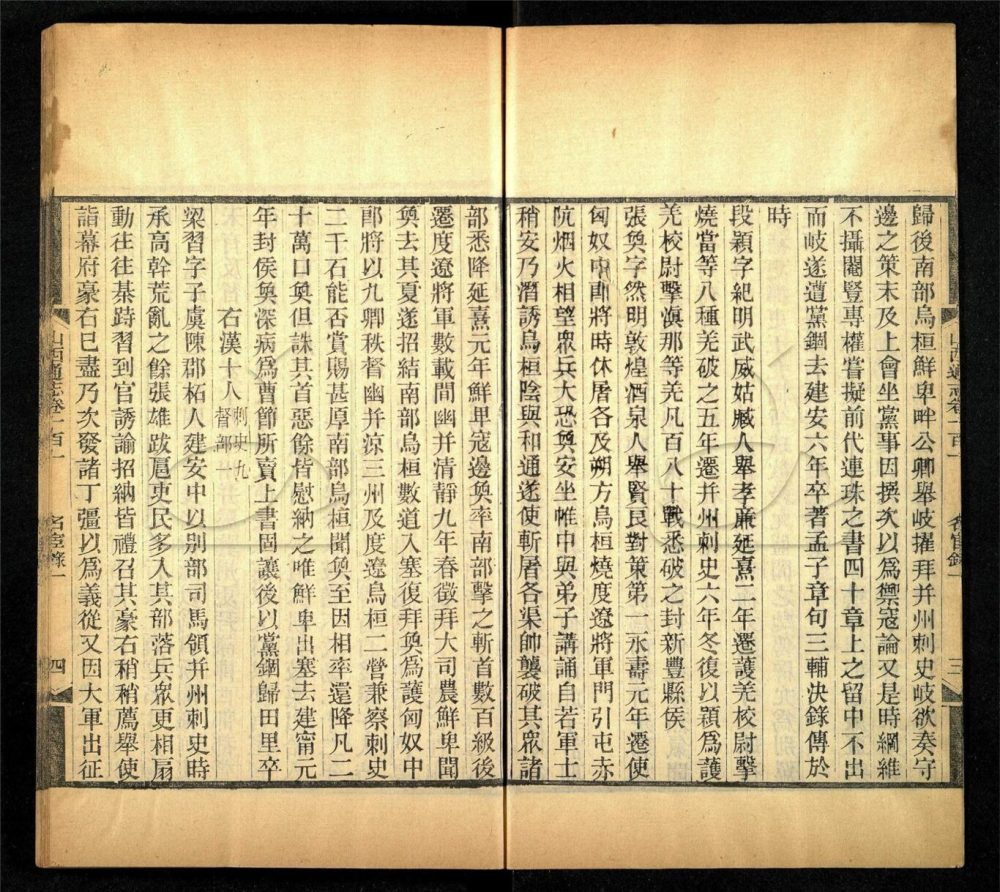 歸後南部烏桓鮮卑畔公卿舉岐擢拜并州刺史岐欲奏守
邊之策未及上會坐黨事因撰次以為禦寇論又是時綱維
不攝閹豎專權嘗擬前代連珠之書四十章上之留中不出
而岐遂遭黨錮去建安六年卒著孟子章句三輔決錄傳於
時
段熲字紀明武威姑臧人舉孝廉延熹二年遷護羌校尉擊
燒當等八種羌破之五年遷并州刺史六年冬復以熲為護
羌校尉擊滇那等羌凡百八十戰悉破之封新豐縣侯
張奐字然明敦煌酒泉人舉賢良對策第一永壽元年遷使
匈奴中郎將時休屠各及朔方烏桓燒度遼將軍門引屯赤
阬烟火相望眾兵大恐奐安坐帷中與弟子講誦自若軍士
稍安乃潛誘烏桓陰與和通遂使斬屠各渠帥襲破其眾諸
山西通志卷一百一 名宦錄一 三
部悉降延熹元年鮮卑寇邊奐率南部擊之斬首數百級後
遷度遼將軍數載間幽并清靜九年春徵拜大司農鮮卑聞
奐去其夏遂招結南部烏桓數道入塞復拜奐為護匈奴中
郎將以九卿秩督幽并涼三州及度遼烏桓二營兼察刺史
二千石能否賞賜甚厚南部烏桓聞奐至因相率還降凡二
十萬口奐但誅其首惡餘皆慰納之唯鮮卑出塞去建甯元
年封侯奐深病為曹節所賣上書固讓後以黨錮歸田里卒
右漢十人刺史九督部一
梁習字子虞陳郡柘人建安中以別部司馬領并州刺史時
承高幹荒亂之餘張雄跋扈吏民多入其部落兵眾更相扇
動往往棊跱習到官誘諭招納皆禮召其豪右稍稍薦舉使
詣幕府豪右已盡乃次發諸丁彊以為義從又因大軍出征
山西通志卷一百一 名宦錄一 四